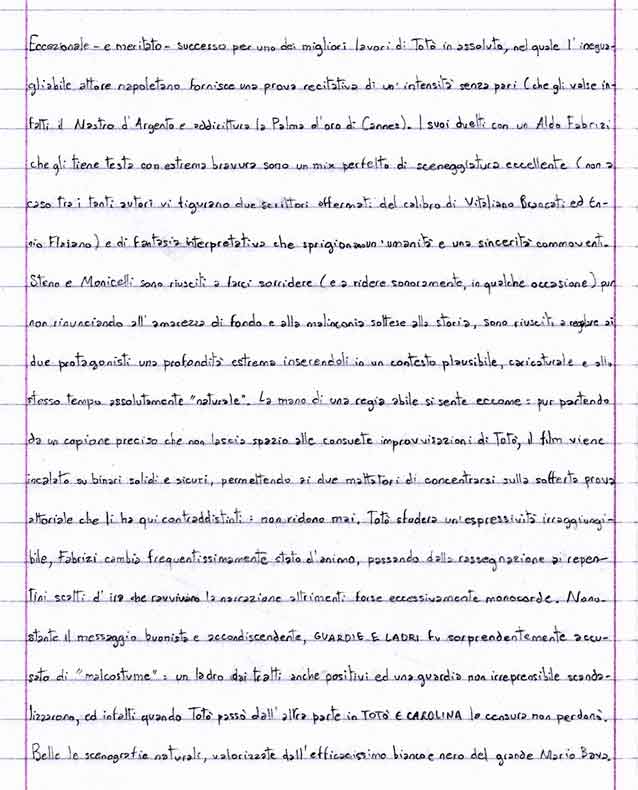 Eccezionale - e meritato - successo per uno dei migliori lavori di Totò in assoluto, nel quale l'inegua-
gliabile attore napoletano fornisce una prova recitativa di un'intensità senza pari (che gli valse in-
fatti il Nastro d'Argento e addirittura la Palma d'oro di Cannes). I suoi duelli con un Aldo Fabrizi
che gli tiene testa con estrema bravura sono un mix perfetto di sceneggiatura eccellente (non a
caso tra i tanti autori vi figurano due scrittori affermati del calibro di Vitaliano Brancati ed En-
nio Flaiano) e di fantasia interpretativa che sprigionano un'umanità e una sincerità commoventi.
Steno e Monicelli sono riusciti a farci sorridere (e a ridere sonoramente, in qualche occasione) pur
non rinunciando all'amarezza di fondo e alla malinconia sottesa alla storia, sono riusciti a regalare ai
due protagonisti una profondità estrema inserendoli in un contesto plausibile, caricaturale e allo
stesso tempo assolutamente "naturale". La mano di una regia abile si sente eccome: pur partendo
da un copione preciso che non lascia spazio alle consuete improvvisazioni di Totò, il film viene
incalato su binari solidi e sicuri, permettendo ai due mattatori di concentrarsi sulla sofferta prova
attoriale che li ha qui contraddistinti: non ridono mai, Totò sfodera un'espressività irraggiungi-
bile, Fabrizi cambia frequentissimamente stato d'animo, passando dalla rassegnazione ai repen-
tini scatti d'ira che ravvivano la narrazione altrimenti forse eccessivamente monocorde. Nono-
stante il messaggio buonista e accondiscendente, GUARDIE E LADRI fu sorprendentemente accu-
sato di "malcostume": un ladro dai tratti anche positivi ed una guardia non irreprensibile scanda-
lizzarono, ed infatti quando Totò passò dall'altra parte in TOTÒ E CAROLINA la censura non perdonò.
Belle le scenografie naturali, valorizzate dall'efficacissimo bianco e nero del grande Mario Bava.